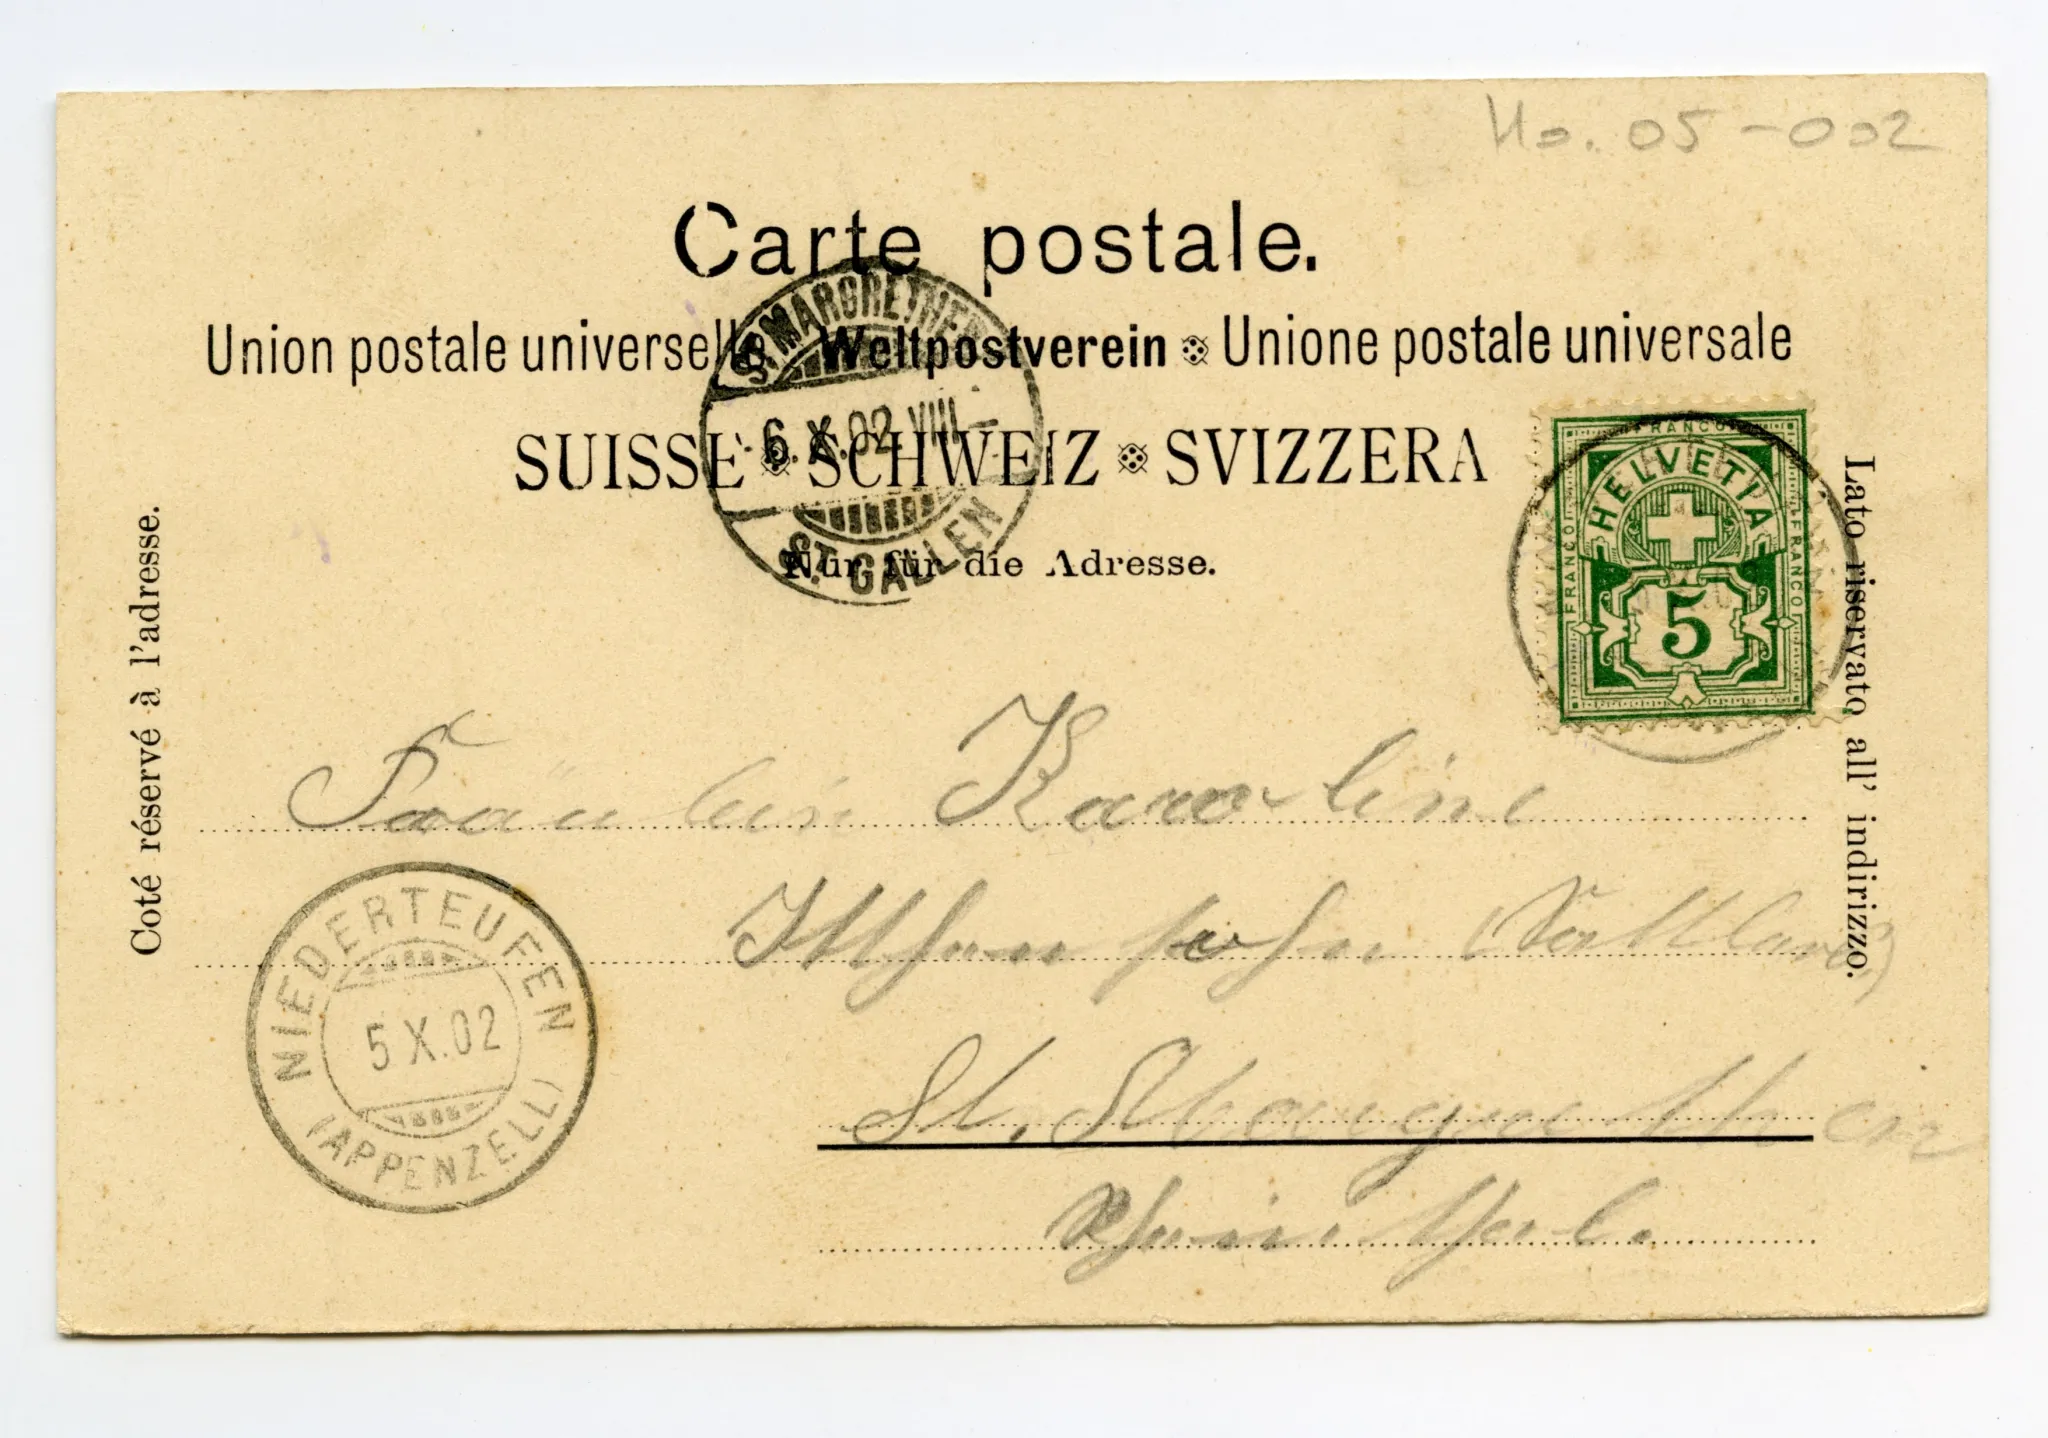 No. 05-002
Carte postale.
Union postale universelle Weltpostverein Unione postale universale
SUISSE SCHWEIZ SVIZZERA
Nur für die Adresse.
Coté réservé à l'adresse.
Lato riservato all' indirizzo.
ST. MARGRETHEN
6.X.02.VIII–
ST. GALLEN
FRANCO
HELVETIA
FRANCO
FRANCO
5
Fräulein Karoline
St. Margrethen
Rheinthal.
NIEDERTEUFEN
5 X.02
(APPENZELL)